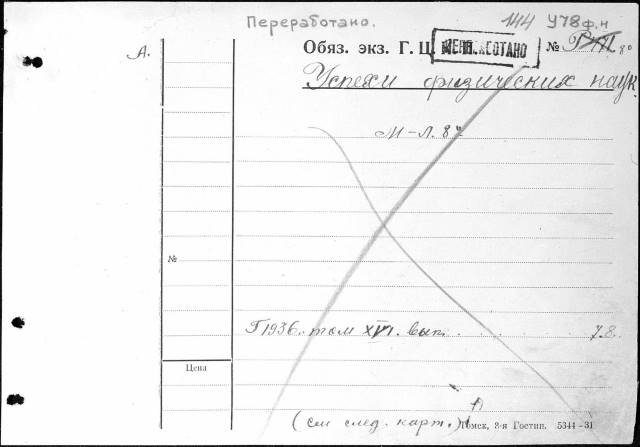 Переработано. 144 У78ф.н
А. Обяз. экз. Г. Ц. №
Успехи физических наук.
М-Л. 8°
№
Г1936. том XVI. вып. 7.8.
Цена
(см след. карт.)
Томск, 3-я Гостип. 5344-31